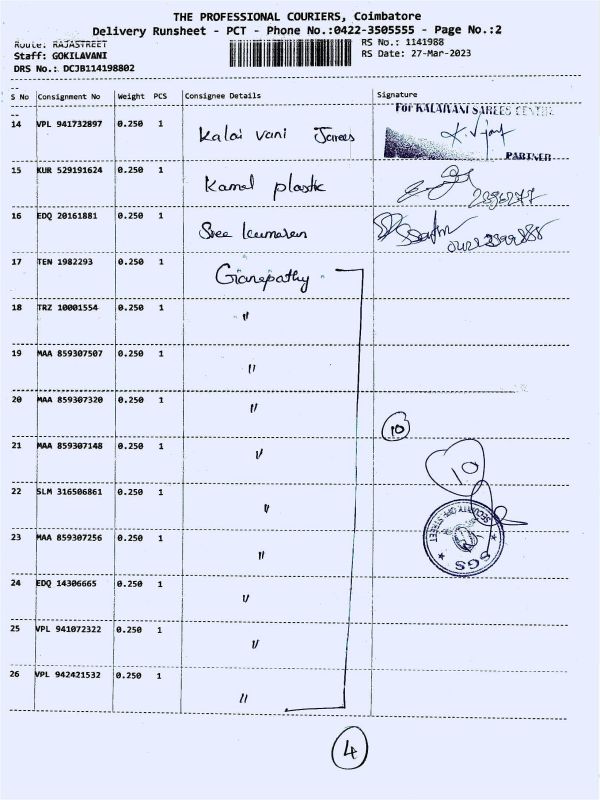 THE PROFESSIONAL COURIERS, Coimbatore
Delivery Runsheet - PCT - Phone No.:0422-3505555 - Page No.:2
Route: RAJASTREET RS No.: 1141988
Staff: GOKILAVANI RS Date: 27-Mar-2023
DRS No.: DCJB114198802
S No Consignment No Weight PCS Consignee Details Signature
For KALAIVANI SAREES CENTRE
14 VPL 941732897 0.250 1 Kalai vani Sarees
PARTNER
15 KUR 529191624 0.250 1 Kamal plastic
16 EDQ 20161881 0.250 1 Sree kumaran
17 TEN 1982293 0.250 1 Ganapathy
18 TRZ 10001554 0.250 1 "
19 MAA 859307507 0.250 1 "
20 MAA 859307320 0.250 1 "
10
21 MAA 859307148 0.250 1 "
10
22 SLM 316506861 0.250 1 "
23 MAA 859307256 0.250 1 "
SGS
24 EDQ 14306665 0.250 1 "
25 VPL 941072322 0.250 1 "
26 VPL 942421532 0.250 1 "
4